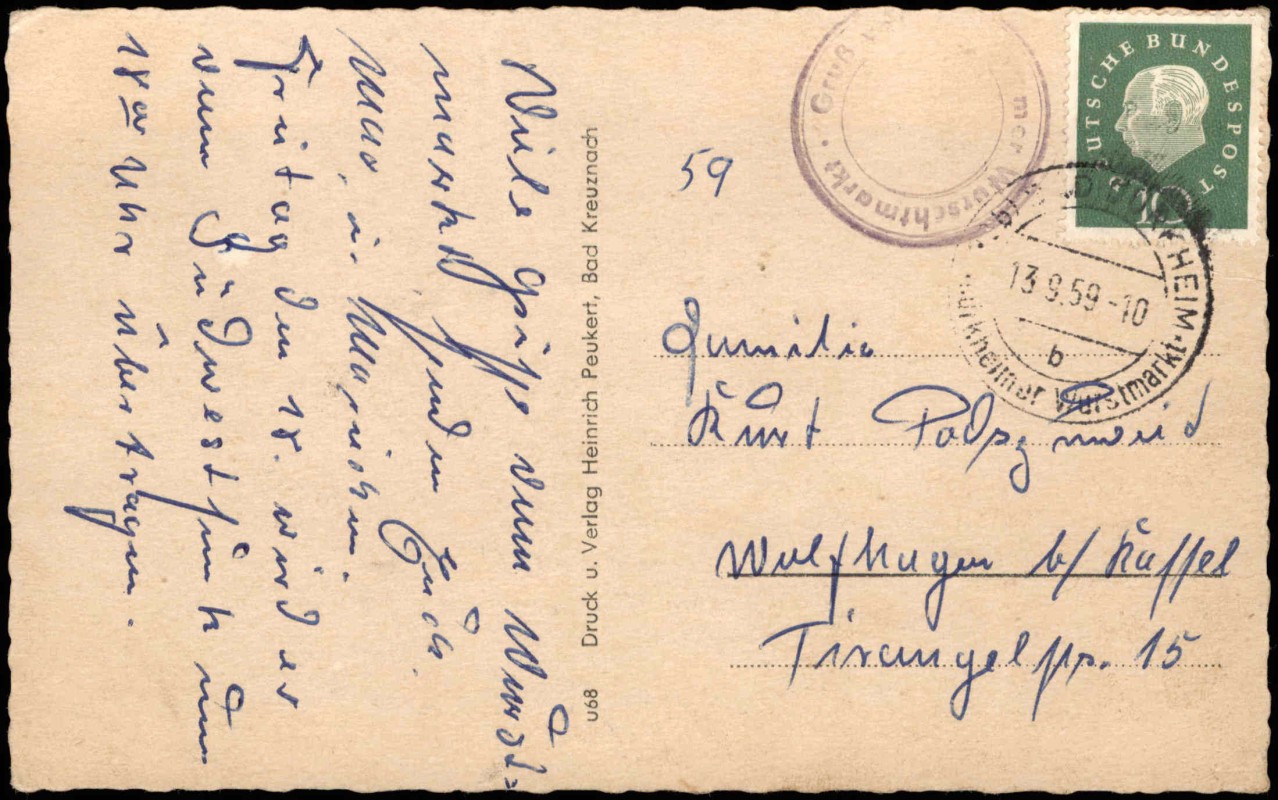 Viele Grüße vom Wurst=
markt senden Euch
Max, u. Mariechen.
Freitag den 18. wird er
vom Südwestfunk um
18 00 Uhr übertragen.
u68 Druck u. Verlag Heinrich Peukert, Bad Kreuznach
59
Gruß mer Wurschtmarkt
DEUTSCHE BUNDESPOST
10
DÜRKHEIM
13.9.59-10
b
Dürkheimer Wurstmarkt
Familie
Kurt Podszuweid
Wolfhagen b/ Kassel
Triangelstr. 15